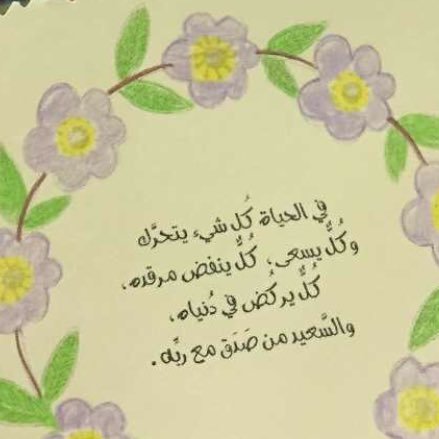 في الحياة كُل شيء يتحرَّك
وكُلٌّ يسعى، كُلٌّ ينفض مرقده،
كُلٌّ يركُض في دُنياه،
والسَّعيد من صَدَق مع ربِّه.